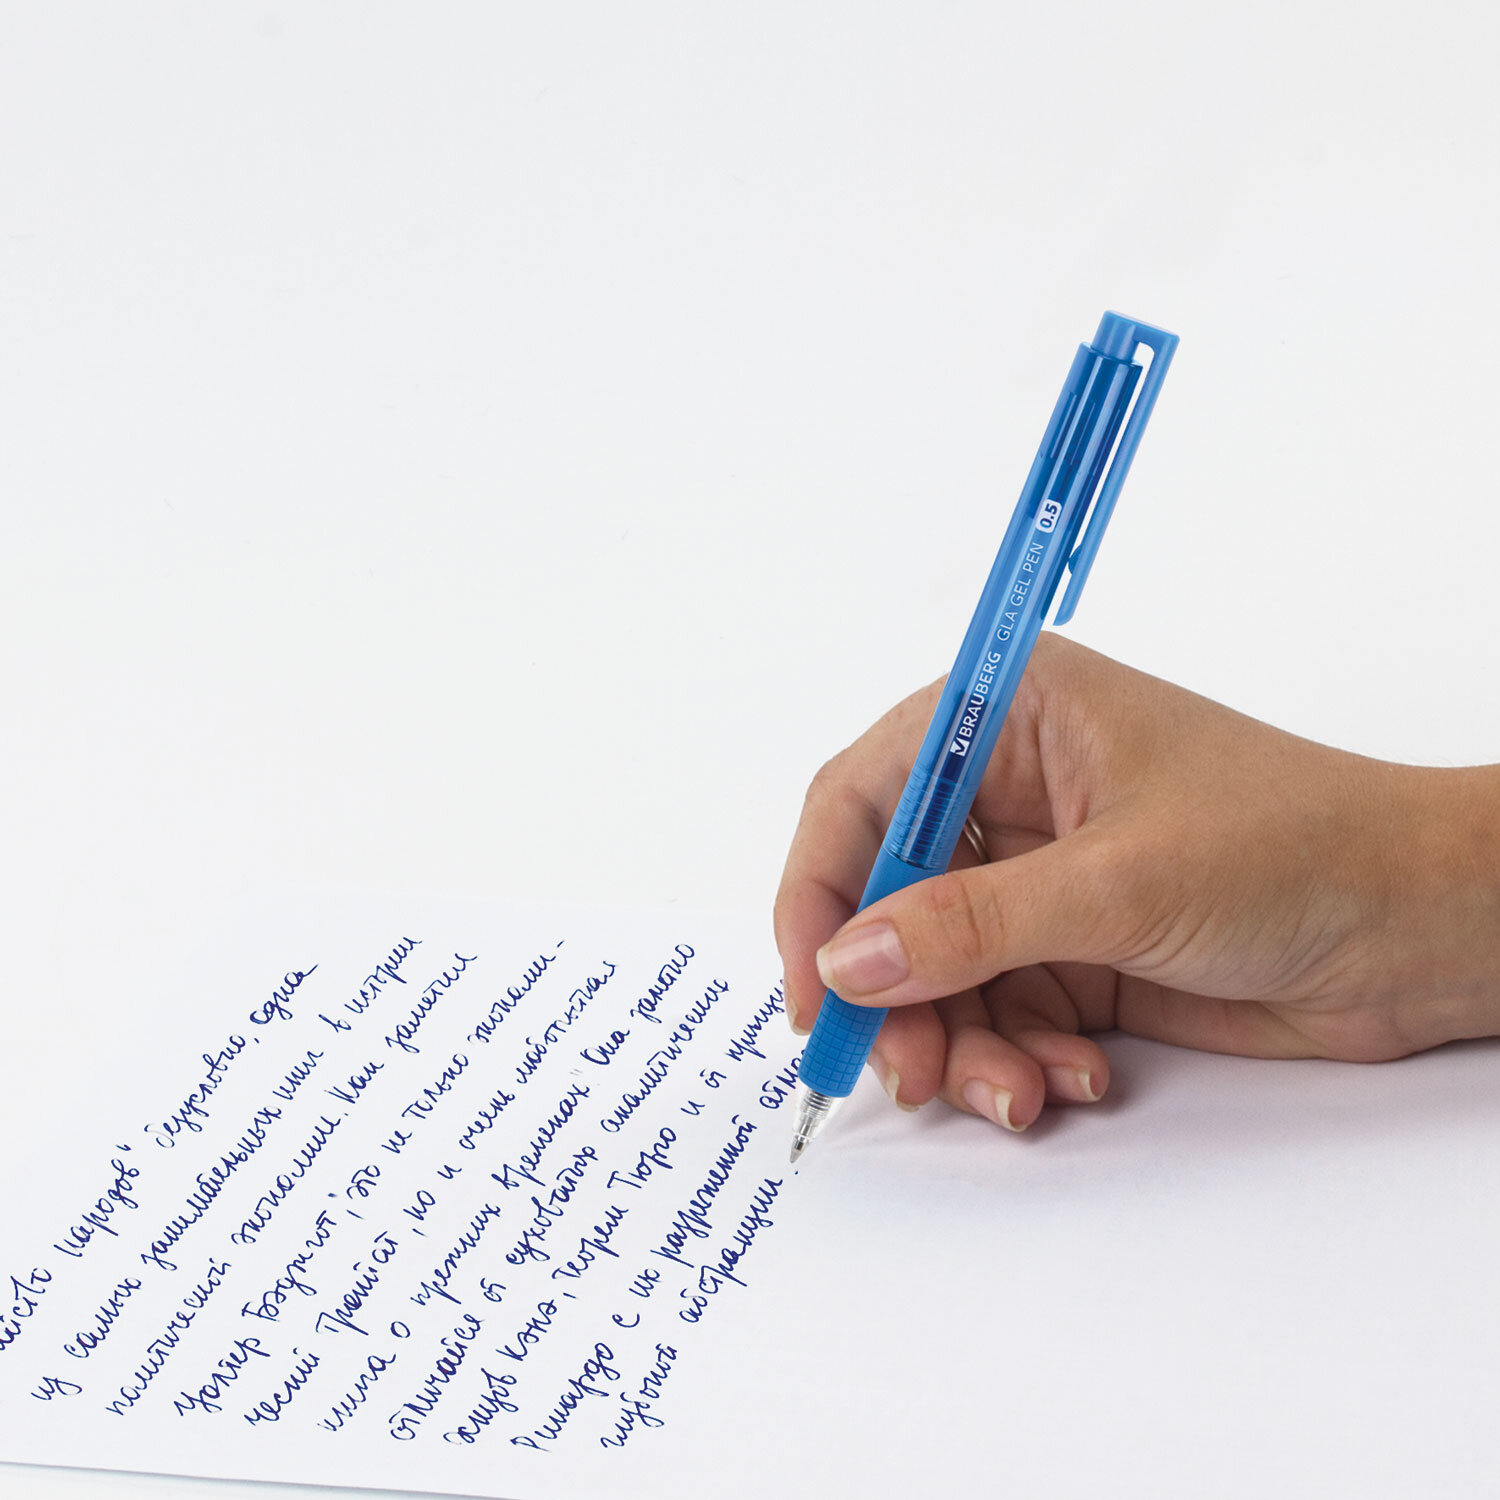 народов" безусловно, одна
из самых занимательных книг в истории
политической экономии. Как заметил
Уолтер Бэджгот, "это не только экономи-
ческий трактат, но и очень любопытная
книга о прежних временах". Она заметно
отличается от суховатых аналитических
эскизов Кэнэ, теорем Тюрго и от
Рикардо с их разреженной
глубокой абстракции.
BRAUBERG GLA GEL PEN 0.5